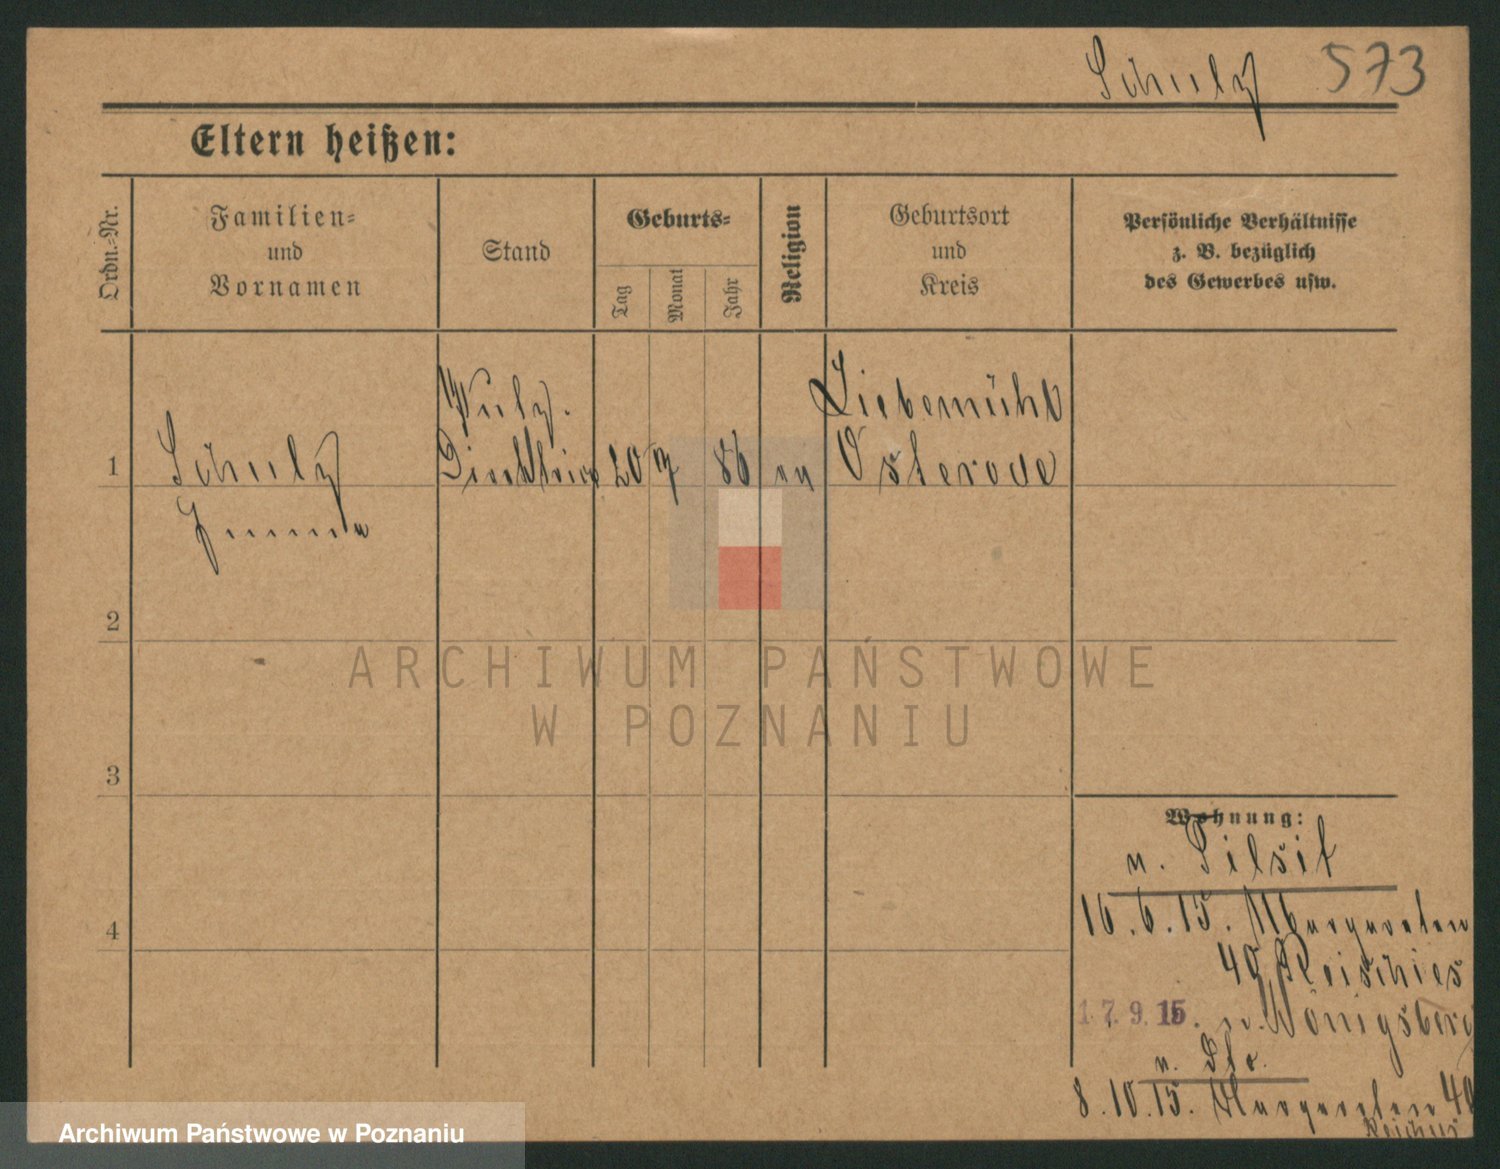 Schulz 573
Eltern heißen:
Ordn.=Nr.
Familien=
und
Vornamen
Stand
Geburts=
Tag
Monat
Jahr
Religion
Geburtsort
und
Kreis
Persönliche Verhältnisse
z. B. bezüglich
des Gewerbes usw.
Liebemühl
Putz.
1 Schulz Direktrice 20 7 86 ev Osterode
Emma
2
ARCHIWUM PAŃSTWOWE
W POZNANIU
3
Wohnung:
n. Tilsit
4
16.6.15. Margareten
40
17.9.15. n. Königsberg
v. Dto.
8.10.15. Margareten 40
Archiwum Państwowe w Poznaniu